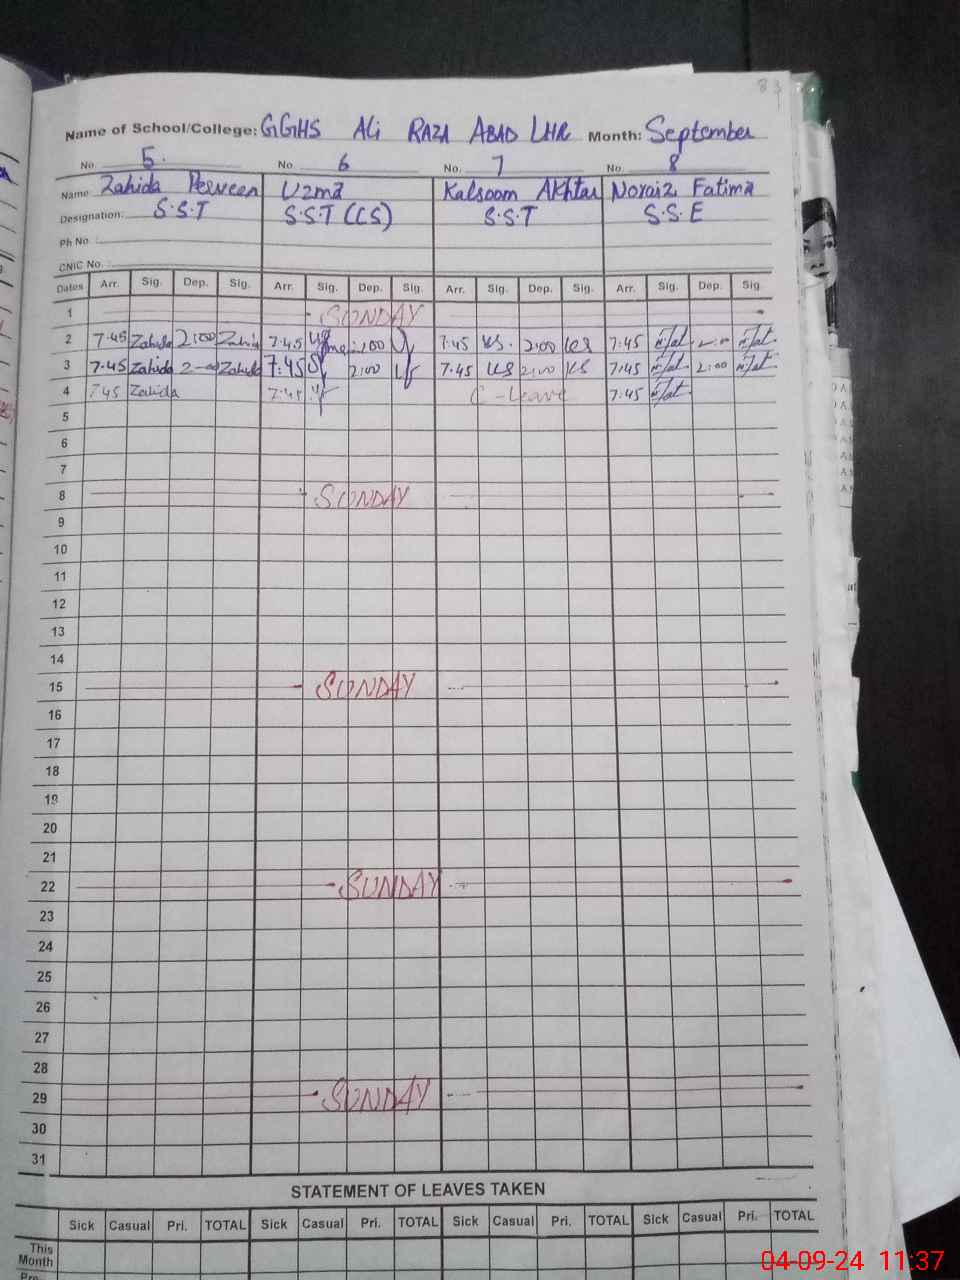 83
Name of School/College: GGHS Ali Raza Abad LHR Month: September
No. 5. No. 6 No. 7 No. 8
Name Zahida Perveen Uzma Kalsoom Akhtar Noraiz Fatima
Designation: S.S.T S.S.T (CS) S.S.T S.S.E
Ph No.:
CNIC No.:
Dates Arr. Sig. Dep. Sig. Arr. Sig. Dep. Sig. Arr. Sig. Dep. Sig. Arr. Sig. Dep. Sig.
1 SUNDAY
2 7.45 Zahida 2:00 Zahida 7.45 2:00 7:45 KS. 2:00 KS 7:45 2:00
3 7.45 Zahida 2-00 Zahida 7.45 2:00 7.45 KS 2:00 KS 7:45 2:00
4 7.45 Zahida 7:45 C-Leave 7:45
5
6
7
8 SUNDAY
9
10
11
12
13
14
15 SUNDAY
16
17
18
19
20
21
22 SUNDAY
23
24
25
26
27
28
29 SUNDAY
30
31
STATEMENT OF LEAVES TAKEN
Sick Casual Pri. TOTAL Sick Casual Pri. TOTAL Sick Casual Pri. TOTAL Sick Casual Pri. TOTAL
This
Month
04-09-24 11:37